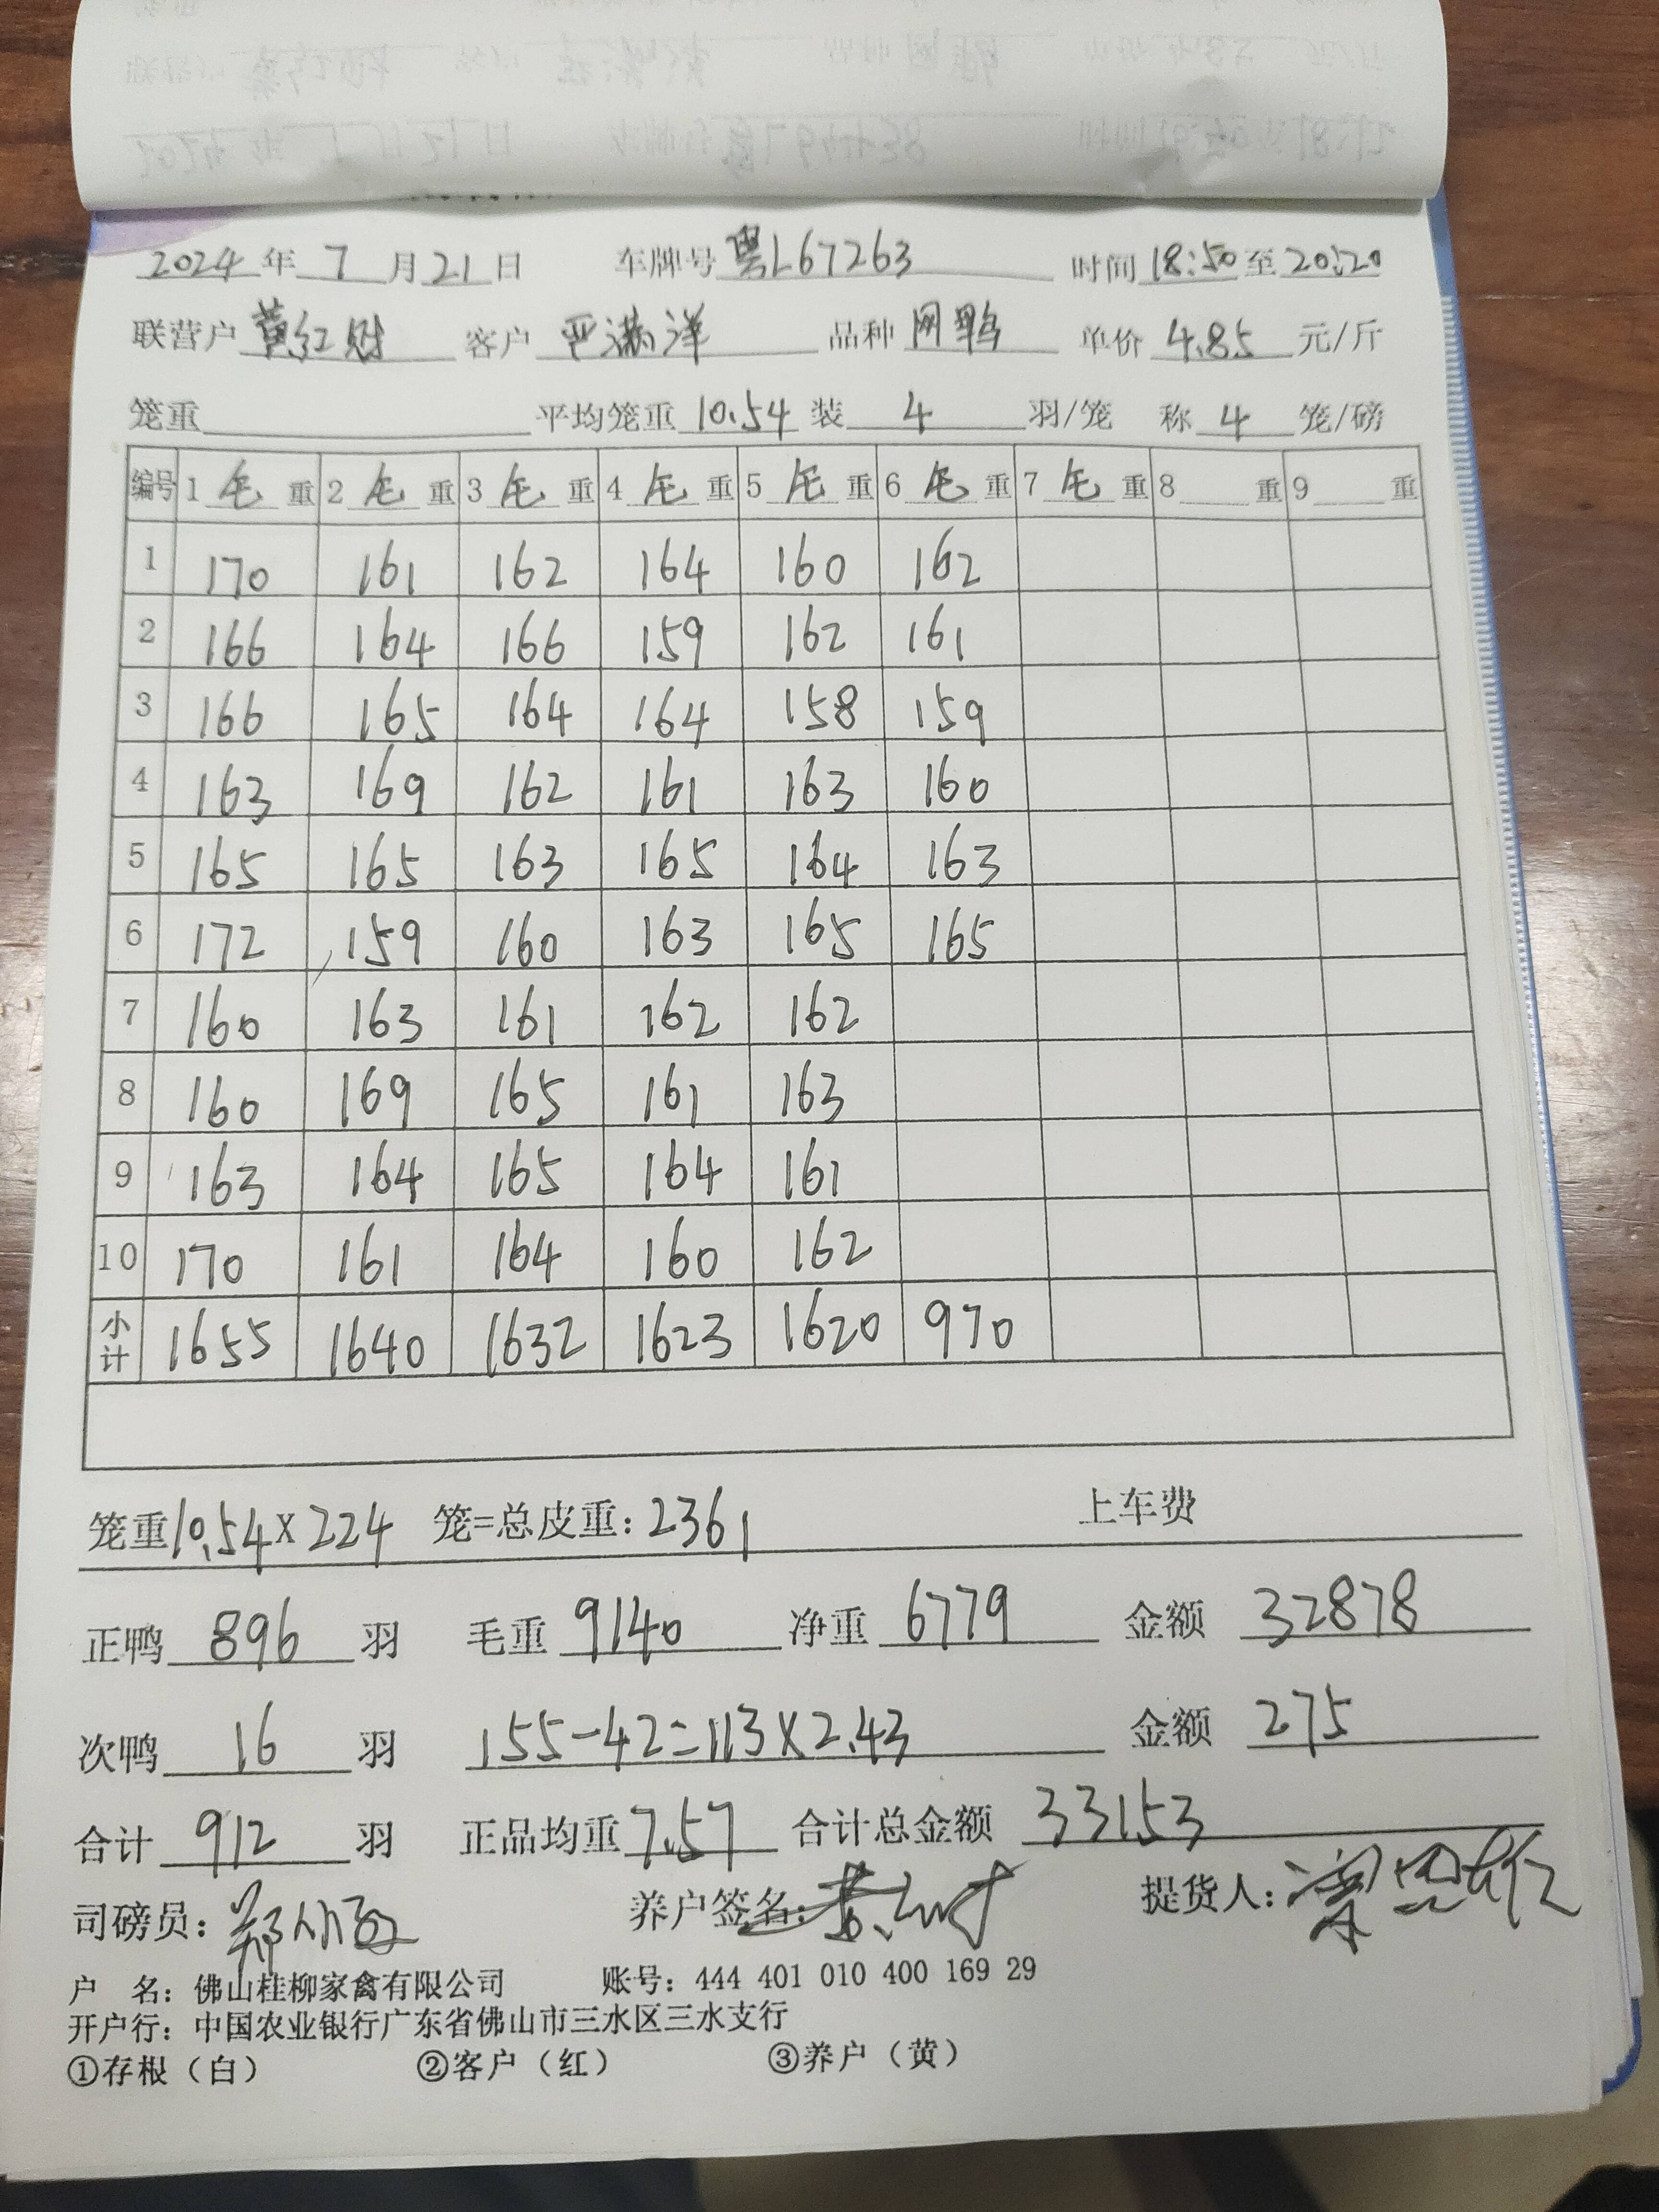 2024年7月21日 车牌号粤L67263 时间18:50至20:20
联营户黄红财 客户严满洋 品种网鸭 单价4.85元/斤
笼重 平均笼重10.54装4羽/笼 称4笼/磅
编号 1毛重 2毛重 3毛重 4毛重 5毛重 6毛重 7毛重 8重 9重
1 170 161 162 164 160 162
2 166 164 166 159 162 161
3 166 165 164 164 158 159
4 163 169 162 161 163 160
5 165 165 163 165 164 163
6 172 159 160 163 165 165
7 160 163 161 162 162
8 160 169 165 161 163
9 163 164 165 164 161
10 170 161 164 160 162
小计 1655 1640 1632 1623 1620 970
笼重10.54×224 笼=总皮重:2361 上车费
正鸭896羽 毛重9140 净重6779 金额32878
次鸭16羽 155-42=113×2.43 金额275
合计912羽 正品均重7.57 合计总金额33153
司磅员: 养户签名: 提货人:
户 名:佛山桂柳家禽有限公司 账号:444 401 010 400 169 29
开户行:中国农业银行广东省佛山市三水区三水支行
①存根(白) ②客户(红) ③养户(黄)